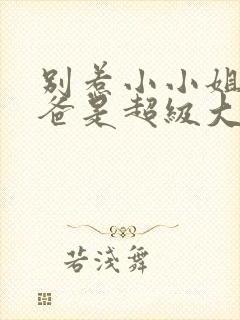 别惹小小姐
爸是超级大
若浅舞